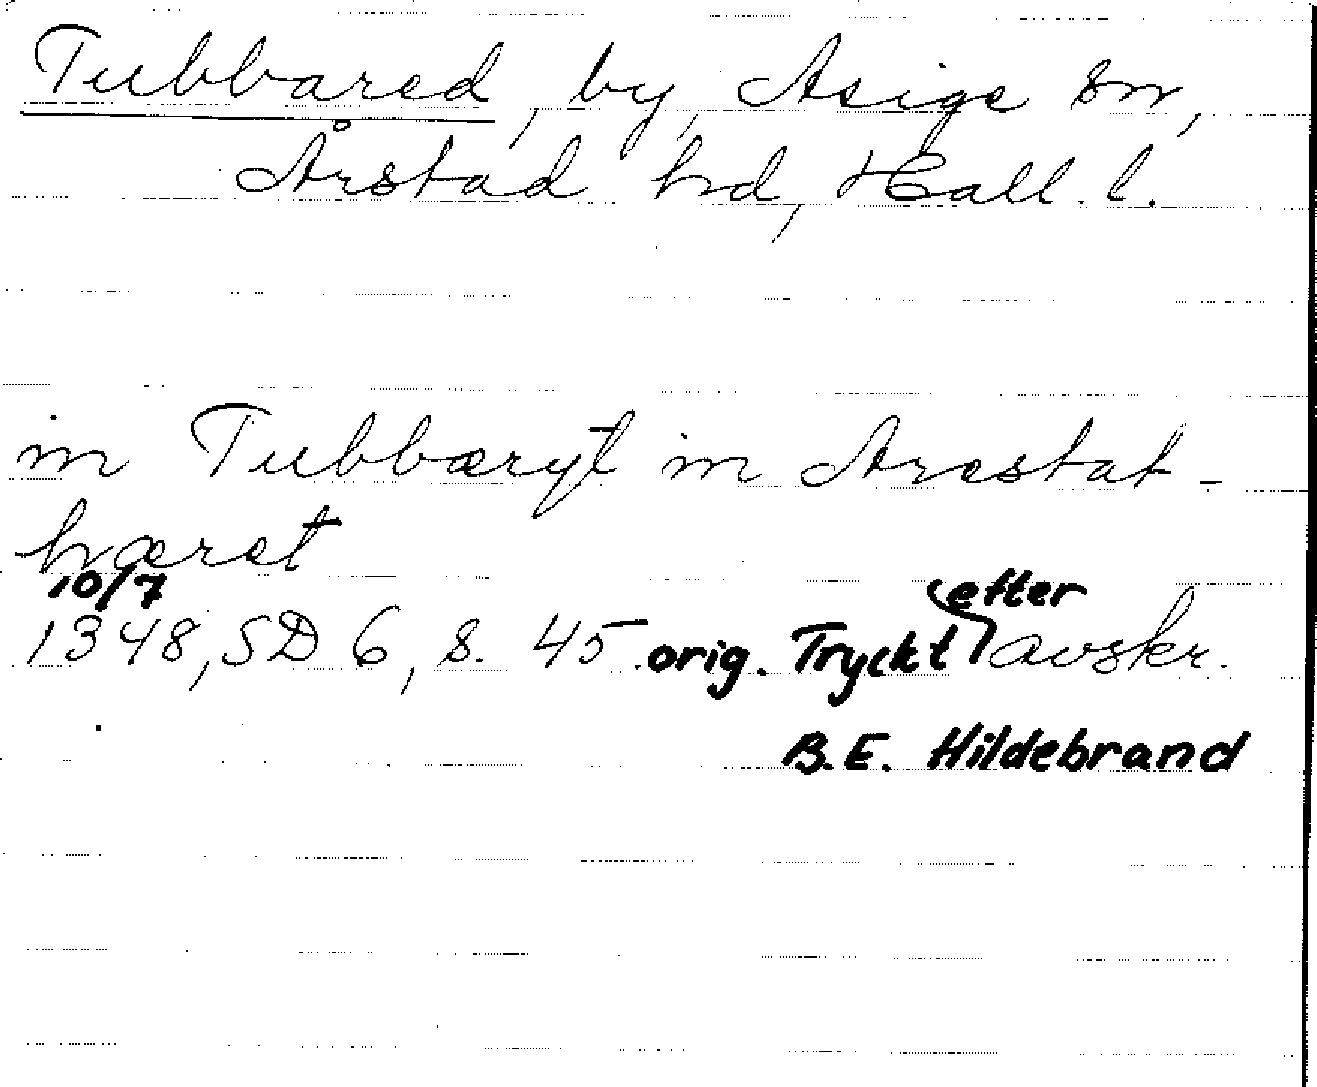 Tubbared, by, Asige sn,
Årstad hd, Hall. l.
in Tubbæryt in Arestat-
hæret
10/7
1348, SD 6, s. 45. orig. Tryckt efter avskr.
B.E. Hildebrand